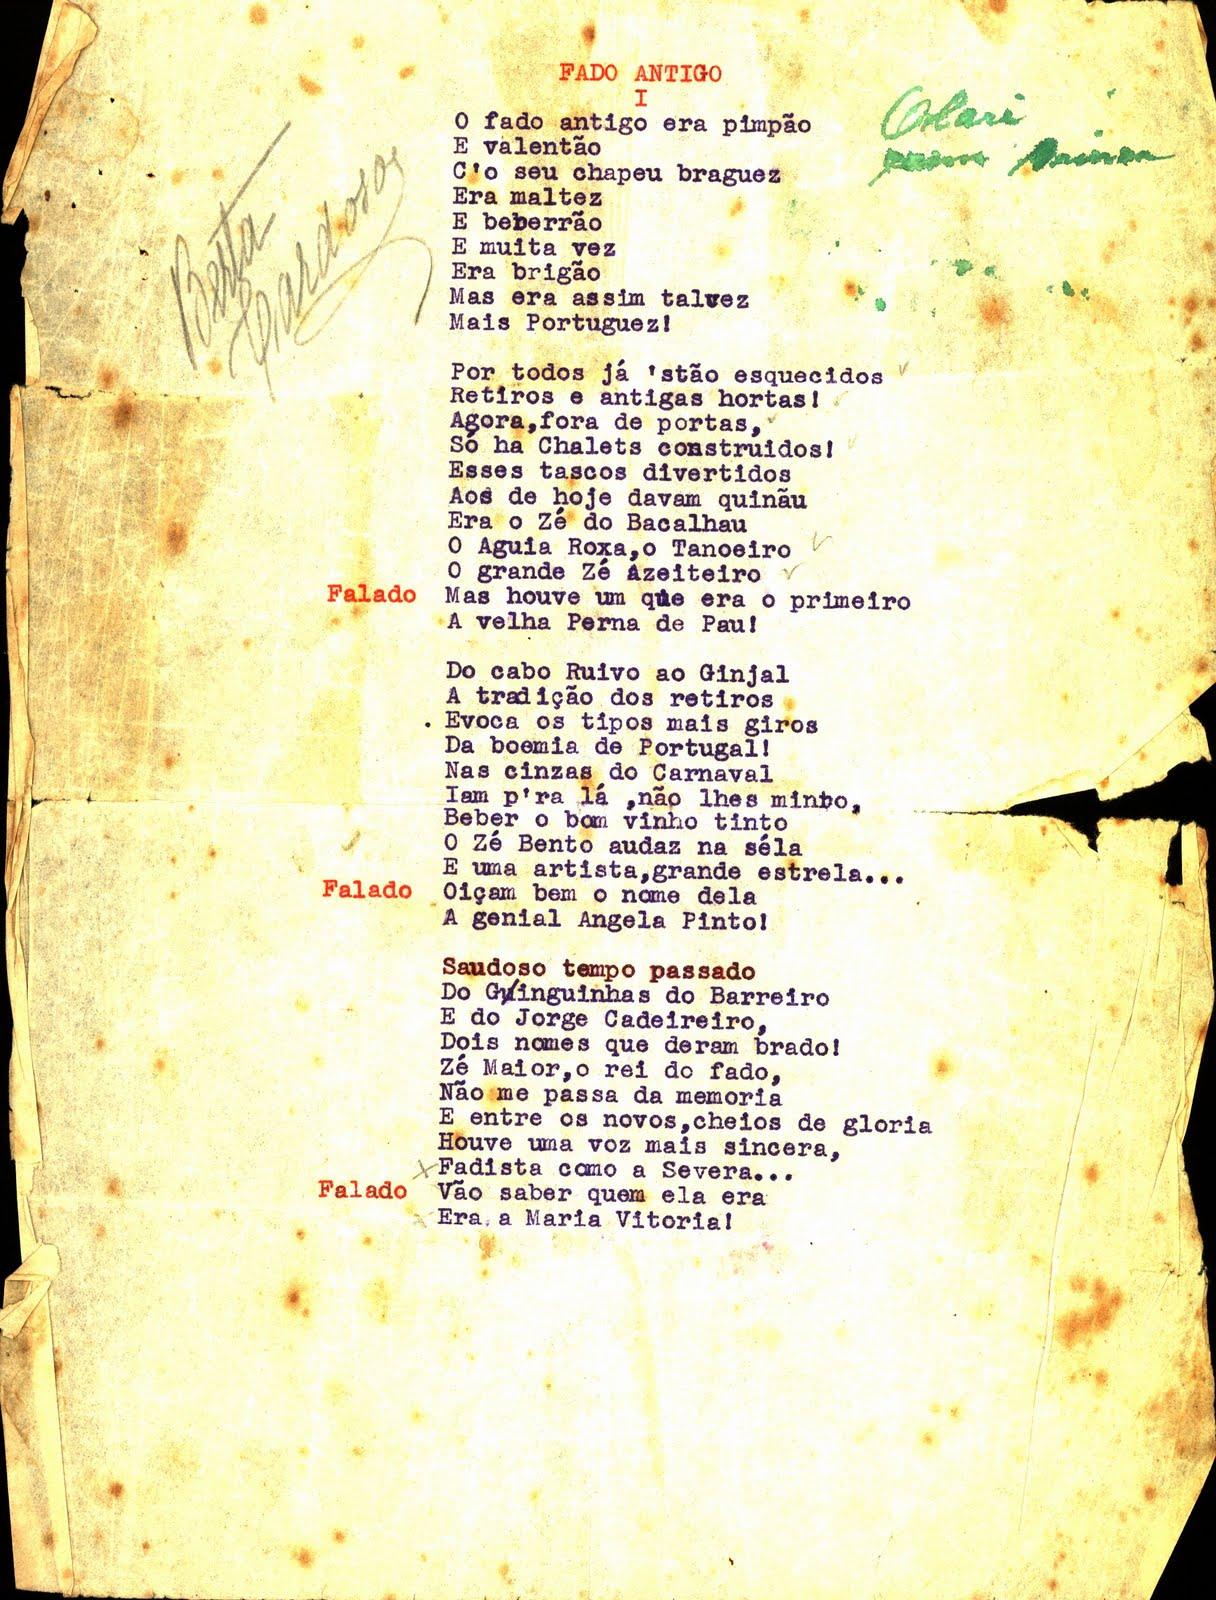 FADO ANTIGO
I
O fado antigo era pimpão
E valentão
C'o seu chapeu braguez
Era maltez
E beberrão
E muita vez
Era brigão
Mas era assim talvez
Mais Portuguez!
Berta
Cardoso
Por todos já 'stão esquecidos
Retiros e antigas hortas!
Agora,fora de portas,
Só ha Chalets construidos!
Esses tascos divertidos
Aos de hoje davam quinãu
Era o Zé do Bacalhau
O Aguia Roxa,o Tanoeiro
O grande Zé Azeiteiro
Falado Mas houve um que era o primeiro
A velha Perna de Pau!
Do cabo Ruivo ao Ginjal
A tradição dos retiros
. Evoca os tipos mais giros
Da boemia de Portugal!
Nas cinzas do Carnaval
Iam p'ra lá ,não lhes minto,
Beber o bom vinho tinto
O Zé Bento audaz na séla
E uma artista,grande estrela...
Falado Oiçam bem o nome dela
A genial Angela Pinto!
Saudoso tempo passado
Do Guinguinhas do Barreiro
E do Jorge Cadeireiro,
Dois nomes que deram brado!
Zé Maior,o rei do fado,
Não me passa da memoria
E entre os novos,cheios de gloria
Houve uma voz mais sincera,
Fadista como a Severa...
Falado Vão saber quem ela era
Era a Maria Vitoria!